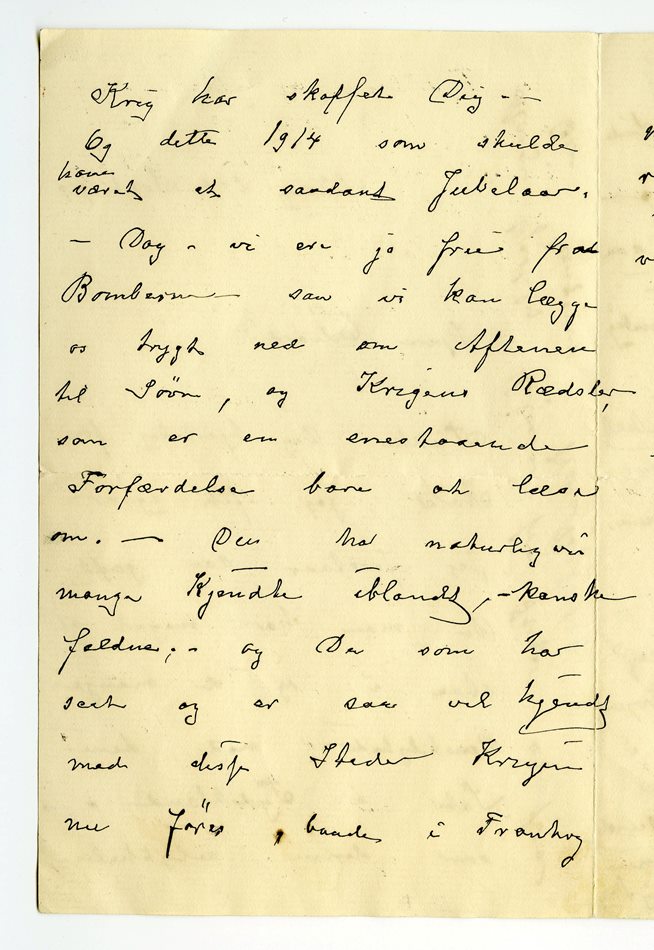 Krig har skaffet Dig. -
Og dette 1914 som skulde
have
været et saadant Jubelaar.
- Dog - vi ere jo frie fra
Bomberne - saa vi kan lægge
os trygt ned om Aftenen
til Søvn, og Krigens Rædsler,
som er en enestaaende
Forfærdelse bare at læse
om. - Du har naturligvis
mange Kjendte iblandt, - kanske
faldne; - og Du som har
seet og er saa vel kjendt
med disse Steder Krigen
nu føres, baade i Frankrig